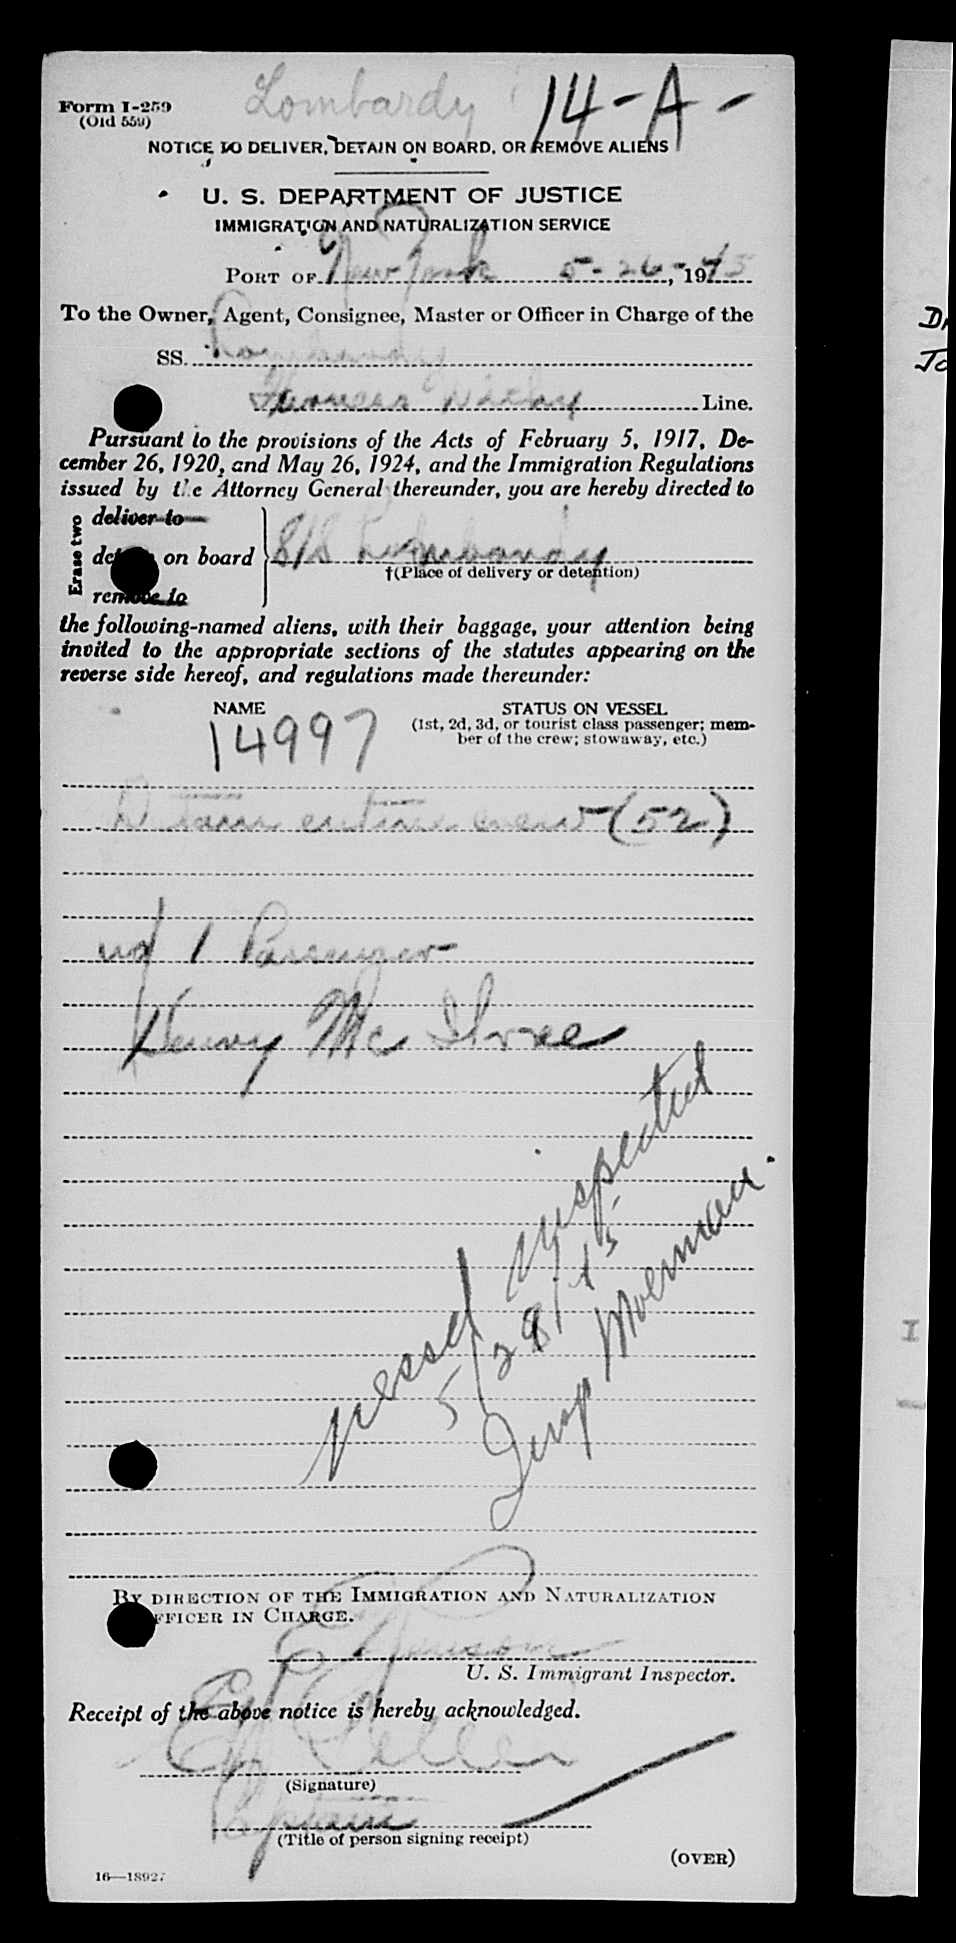 Lombardy 14-A-
Form I-259
(Old 559)
NOTICE TO DELIVER, DETAIN ON BOARD, OR REMOVE ALIENS
U. S. DEPARTMENT OF JUSTICE
IMMIGRATION AND NATURALIZATION SERVICE
PORT OF New York 5-26-, 1945
To the Owner, Agent, Consignee, Master or Officer in Charge of the
SS. Lombardy
Furness Withy Line.
Pursuant to the provisions of the Acts of February 5, 1917, De-
cember 26, 1920, and May 26, 1924, and the Immigration Regulations
issued by the Attorney General thereunder, you are hereby directed to
Erase two
deliver to
detain on board S/S Lombardy
†(Place of delivery or detention)
remove to
the following-named aliens, with their baggage, your attention being
invited to the appropriate sections of the statutes appearing on the
reverse side hereof, and regulations made thereunder:
NAME STATUS ON VESSEL
(1st, 2d, 3d, or tourist class passenger; mem-
ber of the crew; stowaway, etc.)
14997
Detain entire crew-(52)
1 Passenger
Henry Mc
Vessel inspected
5/28/45
Insp Moerman.
BY DIRECTION OF THE IMMIGRATION AND NATURALIZATION
OFFICER IN CHARGE.
U. S. Immigrant Inspector.
Receipt of the above notice is hereby acknowledged.
(Signature)
Captain
(Title of person signing receipt)
(OVER)
16—18927